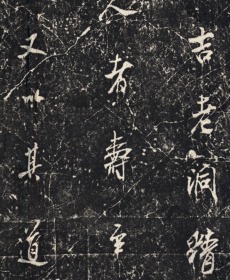 吉老洞精
人者壽年
又以其道